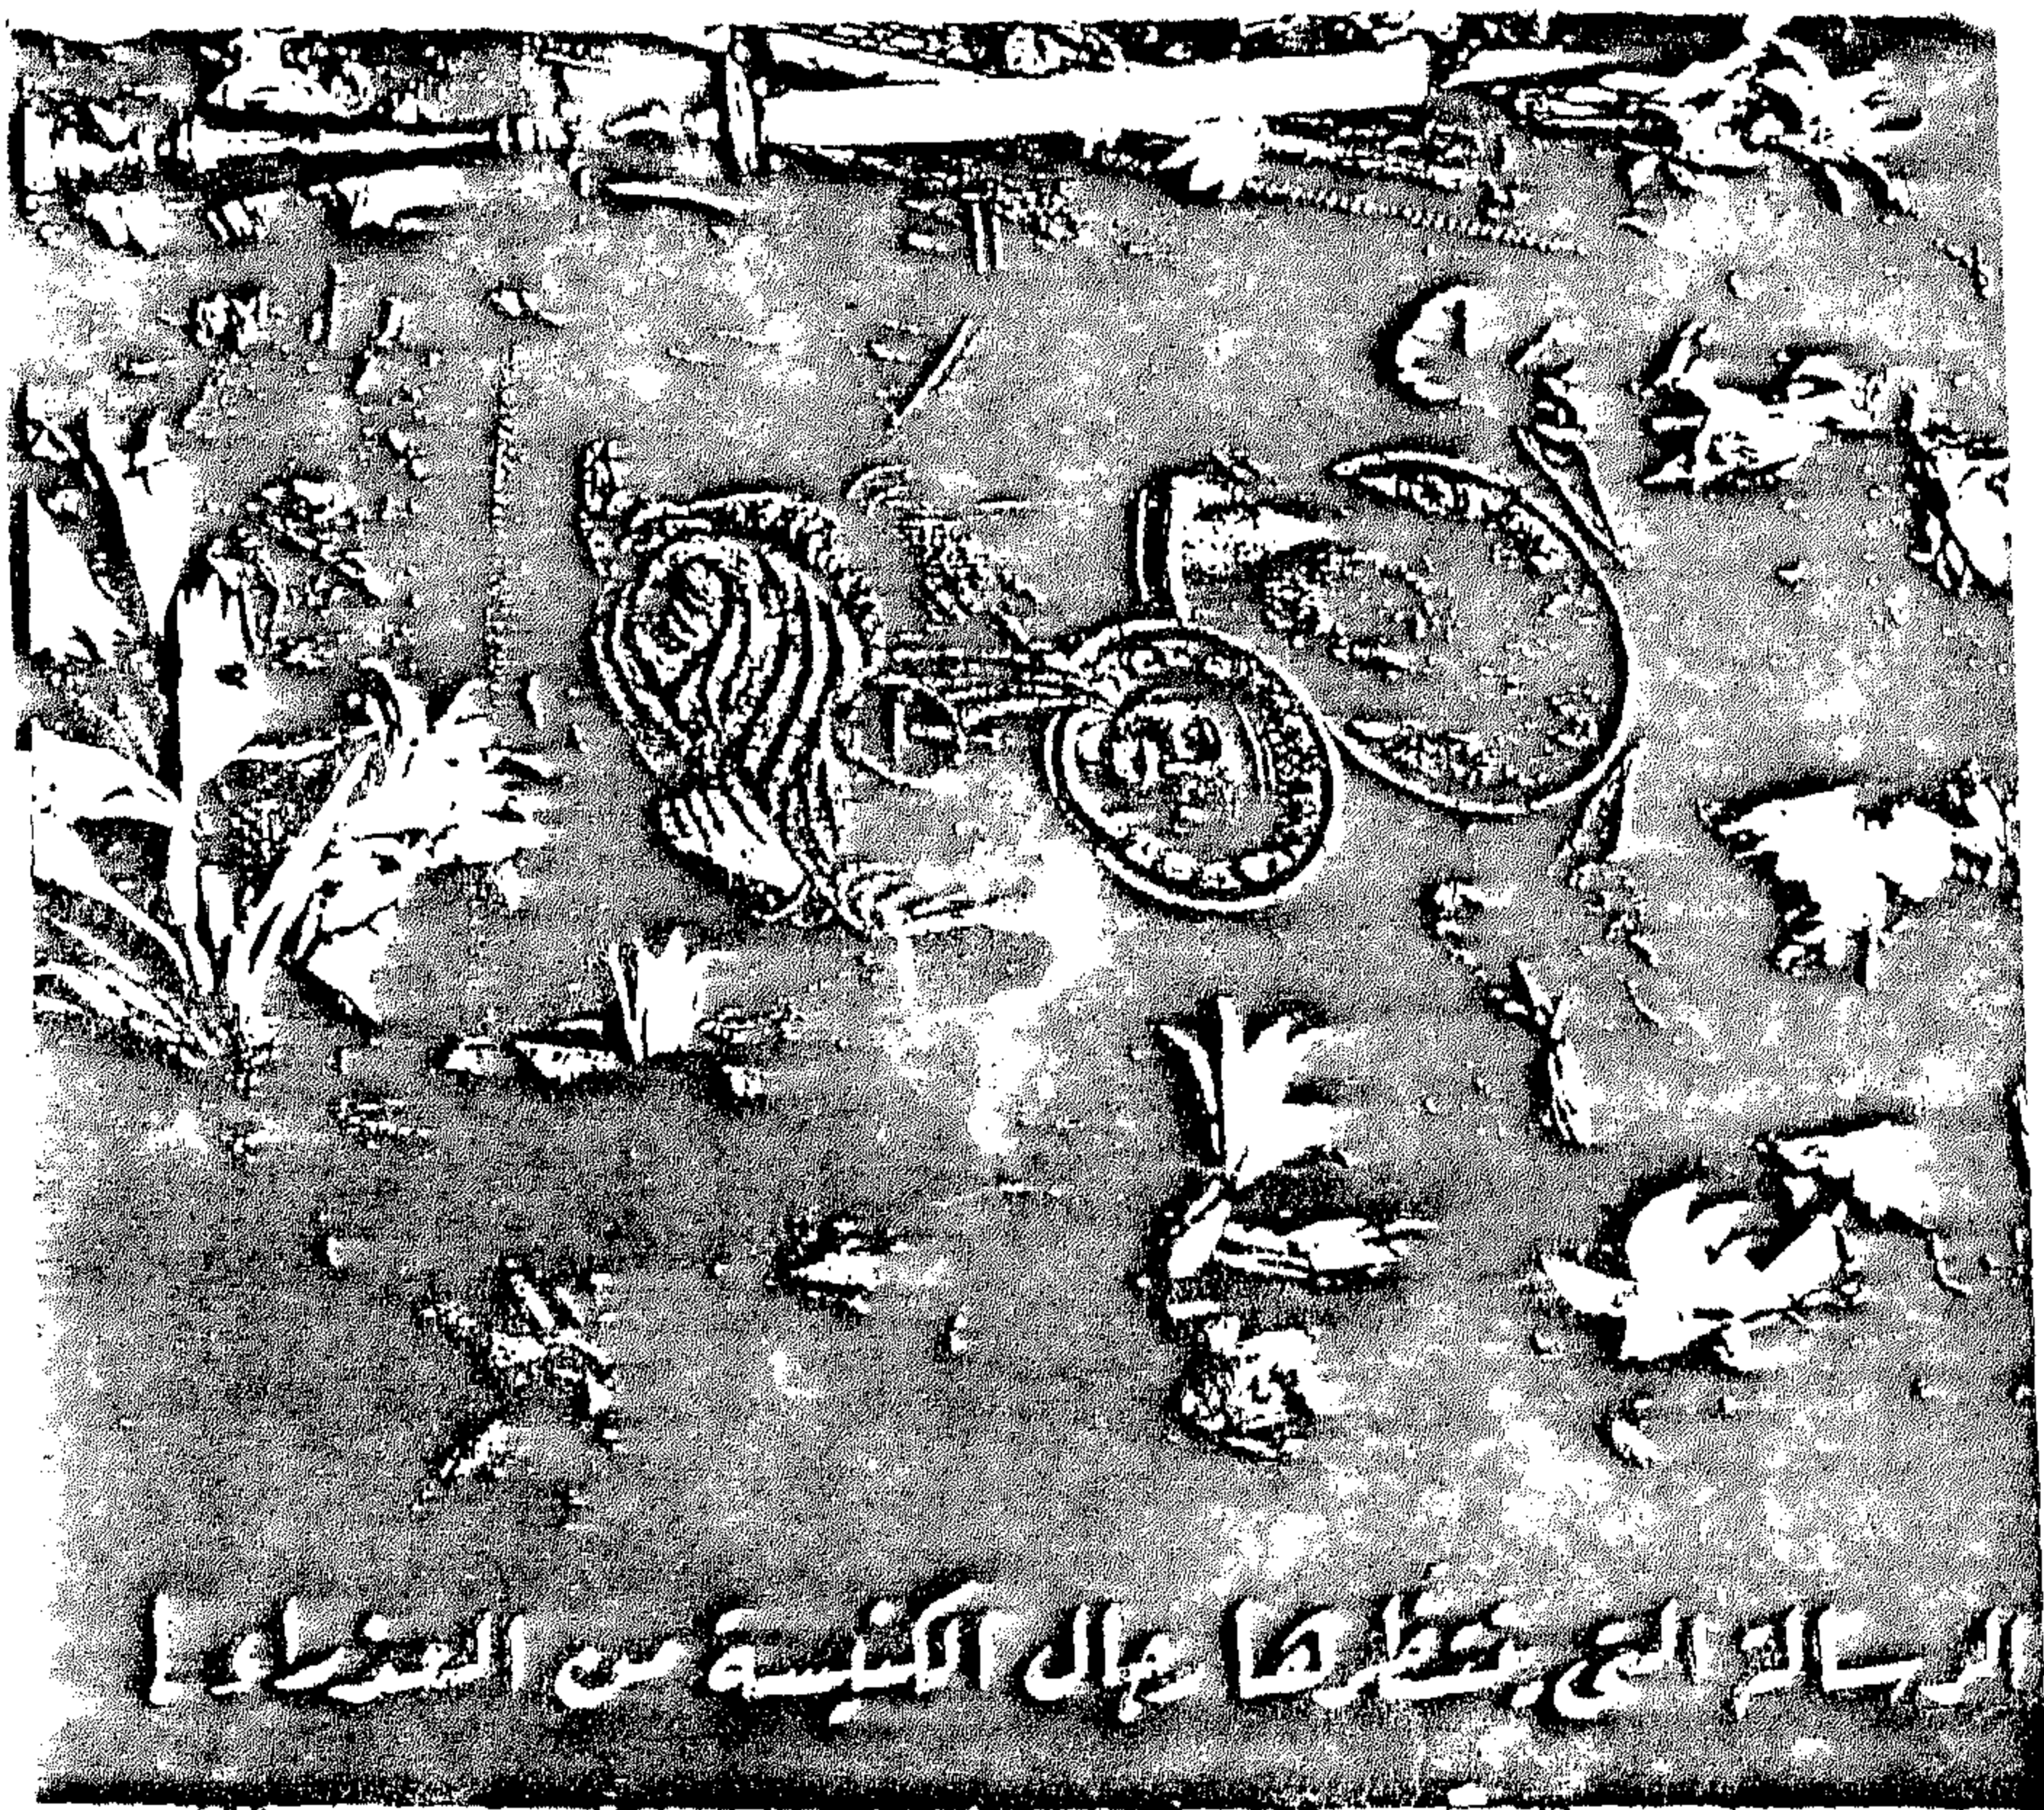 الرسالة التى ينتظرها رجال الكنيسة من العذراء !